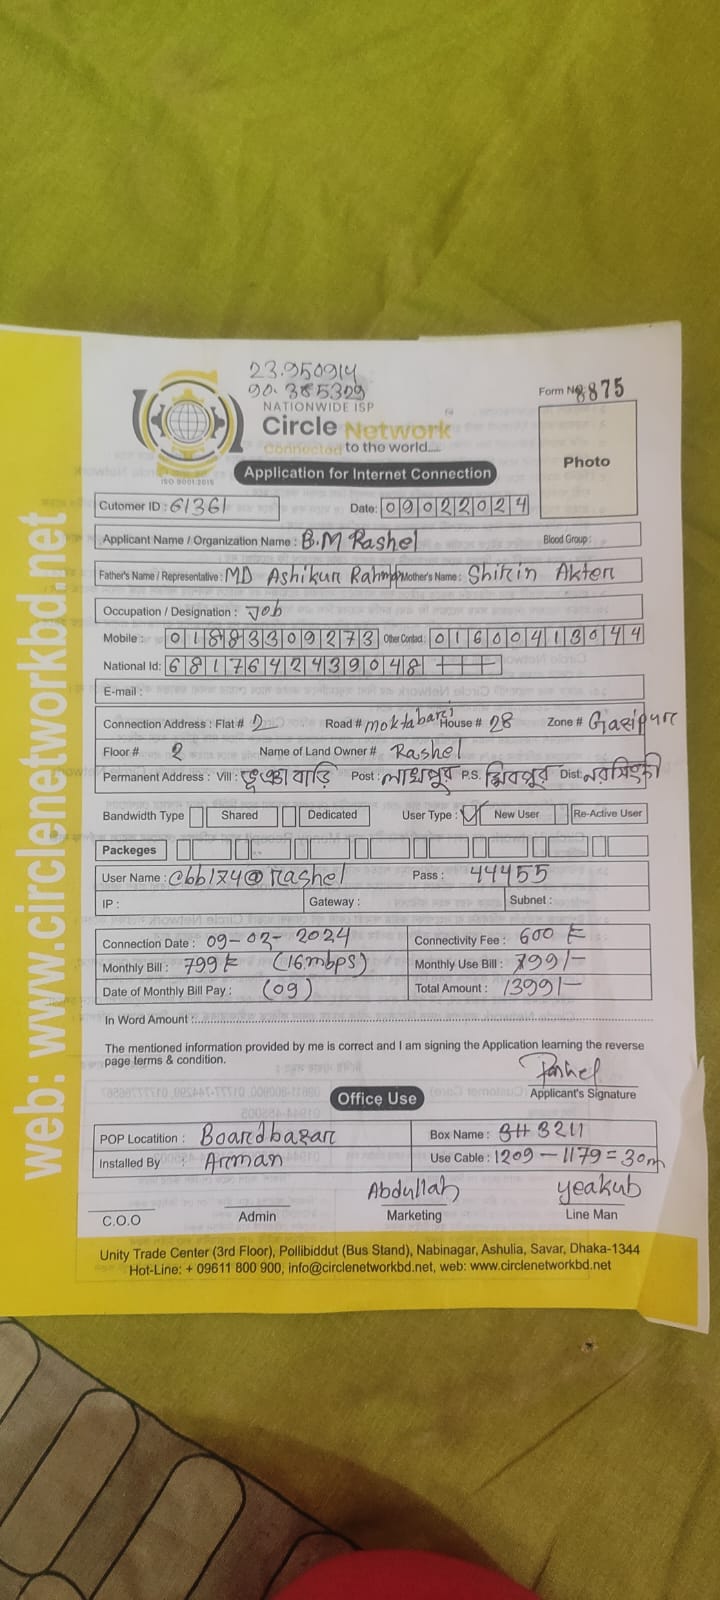 23.950914
90.385329
NATIONWIDE ISP
Form No 8875
Circle Network
Connected to the world....
ISO 9001:2015
Application for Internet Connection
Photo
Cutomer ID : 61361 Date: 09022024
Applicant Name / Organization Name : B.M Rashel Blood Group :
Father's Name / Representative : MD Ashikur Rahman Mother's Name : Shirin Akter
Occupation / Designation : Job
Mobile : 01883309273 Other Contact : 01600413044
National Id: 6817642439048
E-mail :
Connection Address : Flat # 2 Road # moktabari House # 28 Zone # Gazipur
Floor # 2 Name of Land Owner # Rashel
Permanent Address : Vill : বাড়ি Post : লাখপুর P.S. শিবপুর Dist: নরসিংদী
Bandwidth Type Shared Dedicated User Type : New User Re-Active User
Packeges
User Name : Pass : 44455
IP : Gateway : Subnet :
Connection Date : 09-02-2024 Connectivity Fee : 600 ₹
Monthly Bill : 799 ₹ (16mbps) Monthly Use Bill : 799/-
Date of Monthly Bill Pay : (09) Total Amount : 1399/-
In Word Amount :
The mentioned information provided by me is correct and I am signing the Application learning the reverse
page terms & condition.
Rashel
Applicant's Signature
Office Use
POP Locatition : Boardbazar Box Name : 3H 3211
Installed By : Arman Use Cable : 1209 - 1179 = 30m
Abdullah yeakub
C.O.O Admin Marketing Line Man
Unity Trade Center (3rd Floor), Pollibiddut (Bus Stand), Nabinagar, Ashulia, Savar, Dhaka-1344
Hot-Line: + 09611 800 900, info@circlenetworkbd.net, web: www.circlenetworkbd.net
web: www.circlenetworkbd.net